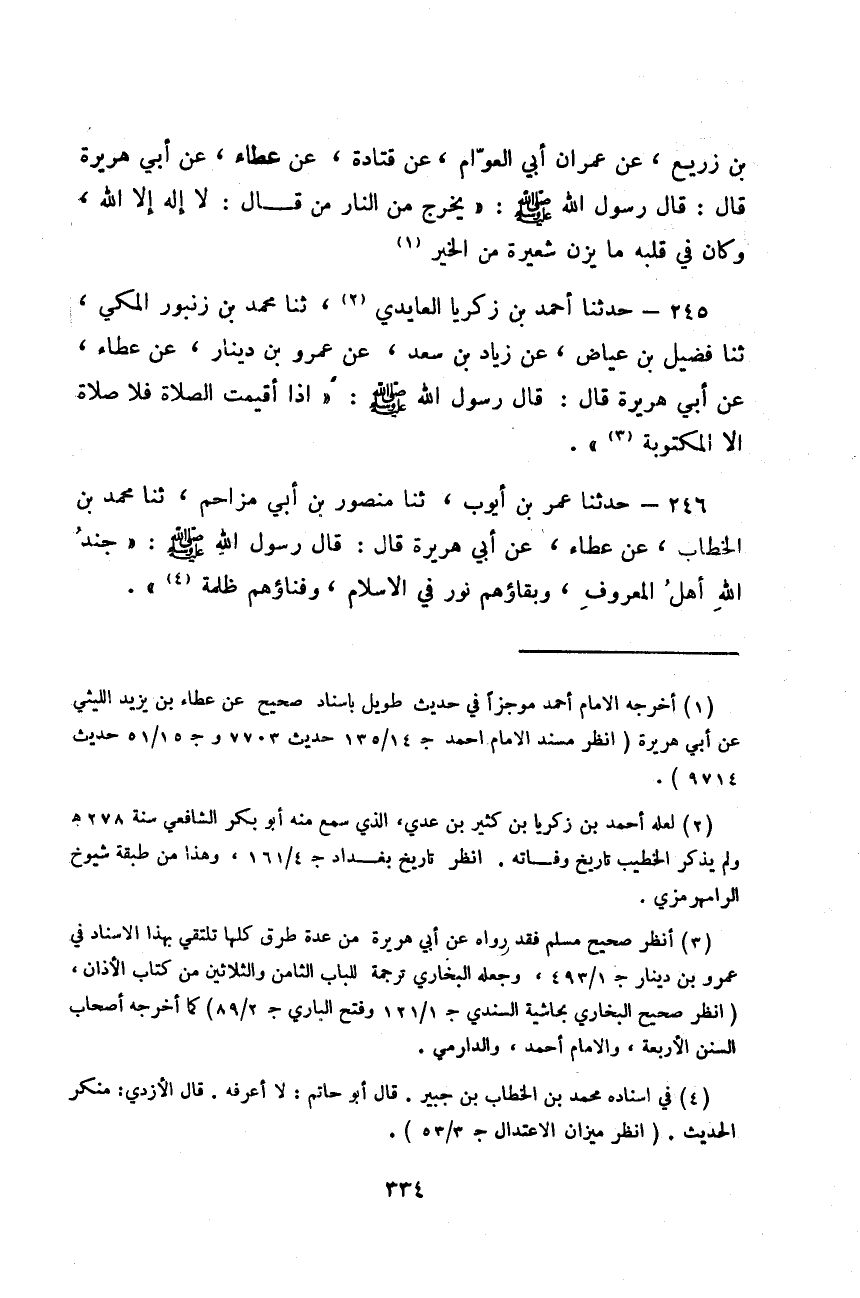 بن زريع ، عن عمران أبي العوّام ، عن قتادة ، عن عطاء ، عن أبي هريرة
قال : قال رسول الله ﷺ : « يخرج من النار من قـــال : لا إله إلا الله ،
وكان في قلبه ما يزن شعيرة من الخير (١)
٢٤٥ – حدثنا أحمد بن زكريا العايدي (٢) ، ثنا محمد بن زنبور المكي ،
ثنا فضيل بن عياض ، عن زياد بن سعد ، عن عمرو بن دينار ، عن عطاء ،
عن أبي هريرة قال : قال رسول الله ﷺ : « اذا أقيمت الصلاة فلا صلاة
الا المكتوبة (٣) » .
٢٤٦ – حدثنا عمر بن أيوب ، ثنا منصور بن أبي مزاحم ، ثنا محمد بن
الخطاب ، عن عطاء ، عن أبي هريرة قال : قال رسول اللهِ ﷺ : « جندُ
اللهِ أهلُ المعروفِ ، وبقاؤهم نور في الاسلام ، وفناؤهم ظلمة (٤) » .
(١) أخرجه الامام أحمد موجزاً في حديث طويل باسناد صحيح عن عطاء بن يزيد الليثي
عن أبي هريرة ( انظر مسند الامام احمد ج ١٣٥/١٤ حديث ٧٧٠٣ و ج ٥١/١٥ حديث
٩٧١٤ ) .
(٢) لعله أحمد بن زكريا بن كثير بن عدي، الذي سمع منه أبو بكر الشافعي سنة ٢٧٨ هـ
ولم يذكر الخطيب تاريخ وفـــاته . انظر تاريخ بغـــداد ج ١٦١/٤ ، وهذا من طبقة شيوخ
الرامهرمزي .
(٣) أنظر صحيح مسلم فقد رواه عن أبي هريرة من عدة طرق كلها تلتقي بهذا الاسناد في
عمرو بن دينار ج ٤٩٣/١ ، وجعله البخاري ترجمة للباب الثامن والثلاثين من كتاب الأذان ،
( انظر صحيح البخاري بحاشية السندي ج ١٢١/١ وفتح الباري ج ٨٩/٢ ) كما أخرجه أصحاب
السنن الأربعة ، والامام أحمد ، والدارمي .
(٤) في اسناده محمد بن الخطاب بن جبير . قال أبو حاتم : لا أعرفه . قال الأزدي: منكر
الحديث . ( انظر ميزان الاعتدال ج ٥٣/٣ ) .
٣٣٤